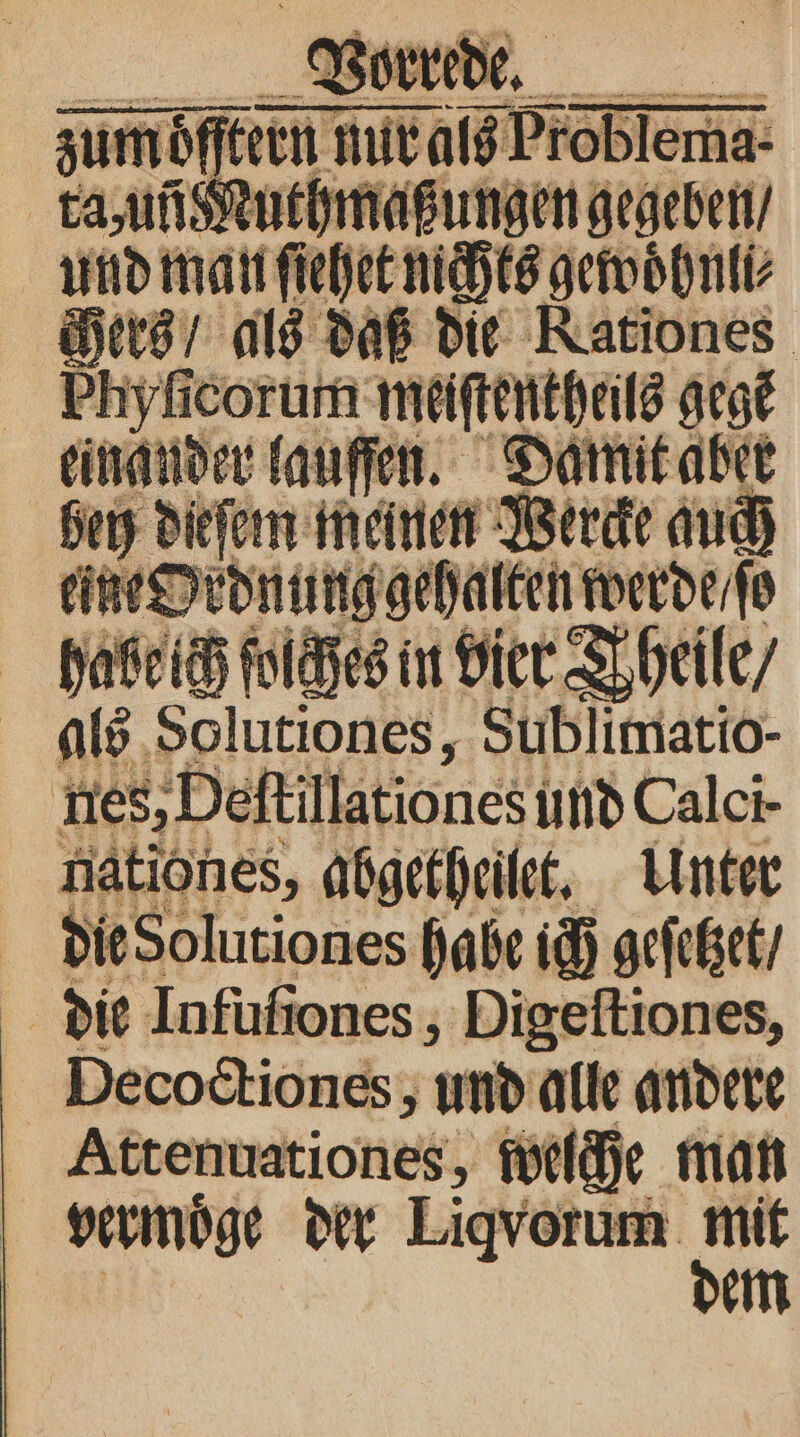 Vorrede.
zum oͤfftern nur als Problema-
ta, uñ Muthmaßungen gegeben/
und man ſiehet nichts gewoͤhnli⸗
chers/ als daß die Rationes
Phyſicorum meiſtentheils gegẽ
einander lauffen. Damit aber
bey dieſem meinen Wercke auch
eine Ordnung gehalten werde/ ſo
habe ich ſolches in vier Theile/
als Solutiones, Sublimatio-
nes, Deſtillationes und Calci-
nationes, abgetheilet. Unter
die Solutiones habe ich geſetzet/
die Infuſiones, Digeſtiones,
Decoctiones, und alle andere
Attenuationes, welche man
vermoͤge der Liqvorum mit
dem